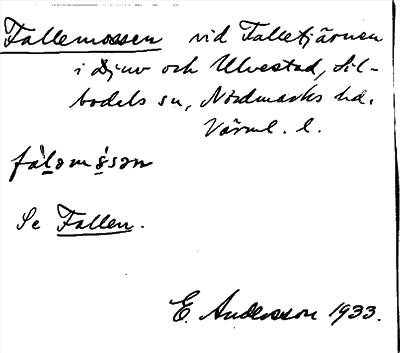 Fallemossen vid Falletjärnen
i Djuv och Ulvestad, Sil-
bodals sn, Nordmarks hd.
Värml. l.
fàləmòsən
Se Fallen.
E. Andersson 1933.